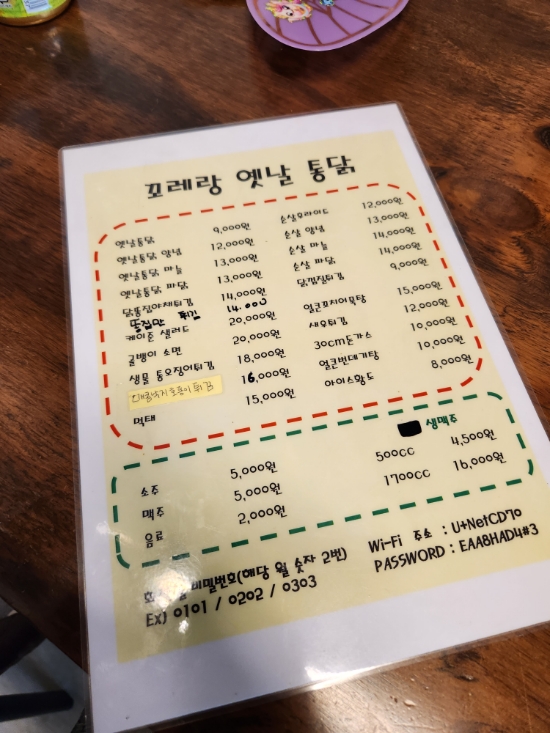 꼬레랑 옛날 통닭
옛날통닭 9,000원
옛날통닭 양념 12,000원
옛날통닭 마늘 13,000원
옛날통닭 파닭 13,000원
닭똥집야채튀김 14,000원
똥집만 튀김 14.000
케이준 샐러드 20,000원
골뱅이 소면 20,000원
생물 통오징어튀김 18,000원
튀김 16,000원
먹태 15,000원
순살후라이드 12,000원
순살 양념 13,000원
순살 마늘 14,000원
순살 파닭 14,000원
닭껍질튀김 9,000원
얼큰꼬치어묵탕 15,000원
새우튀김 12,000원
30cm돈가스 10,000원
얼큰번데기탕 10,000원
아이스황도 8,000원
소주 5,000원
맥주 5,000원
음료 2,000원
생맥주
500cc 4,500원
1700cc 16,000원
비밀번호(해당 월 숫자 2번)
Ex) 0101 / 0202 / 0303
Wi-Fi 주소 : U+NetCD70
PASSWORD : EAA8HAD4#3